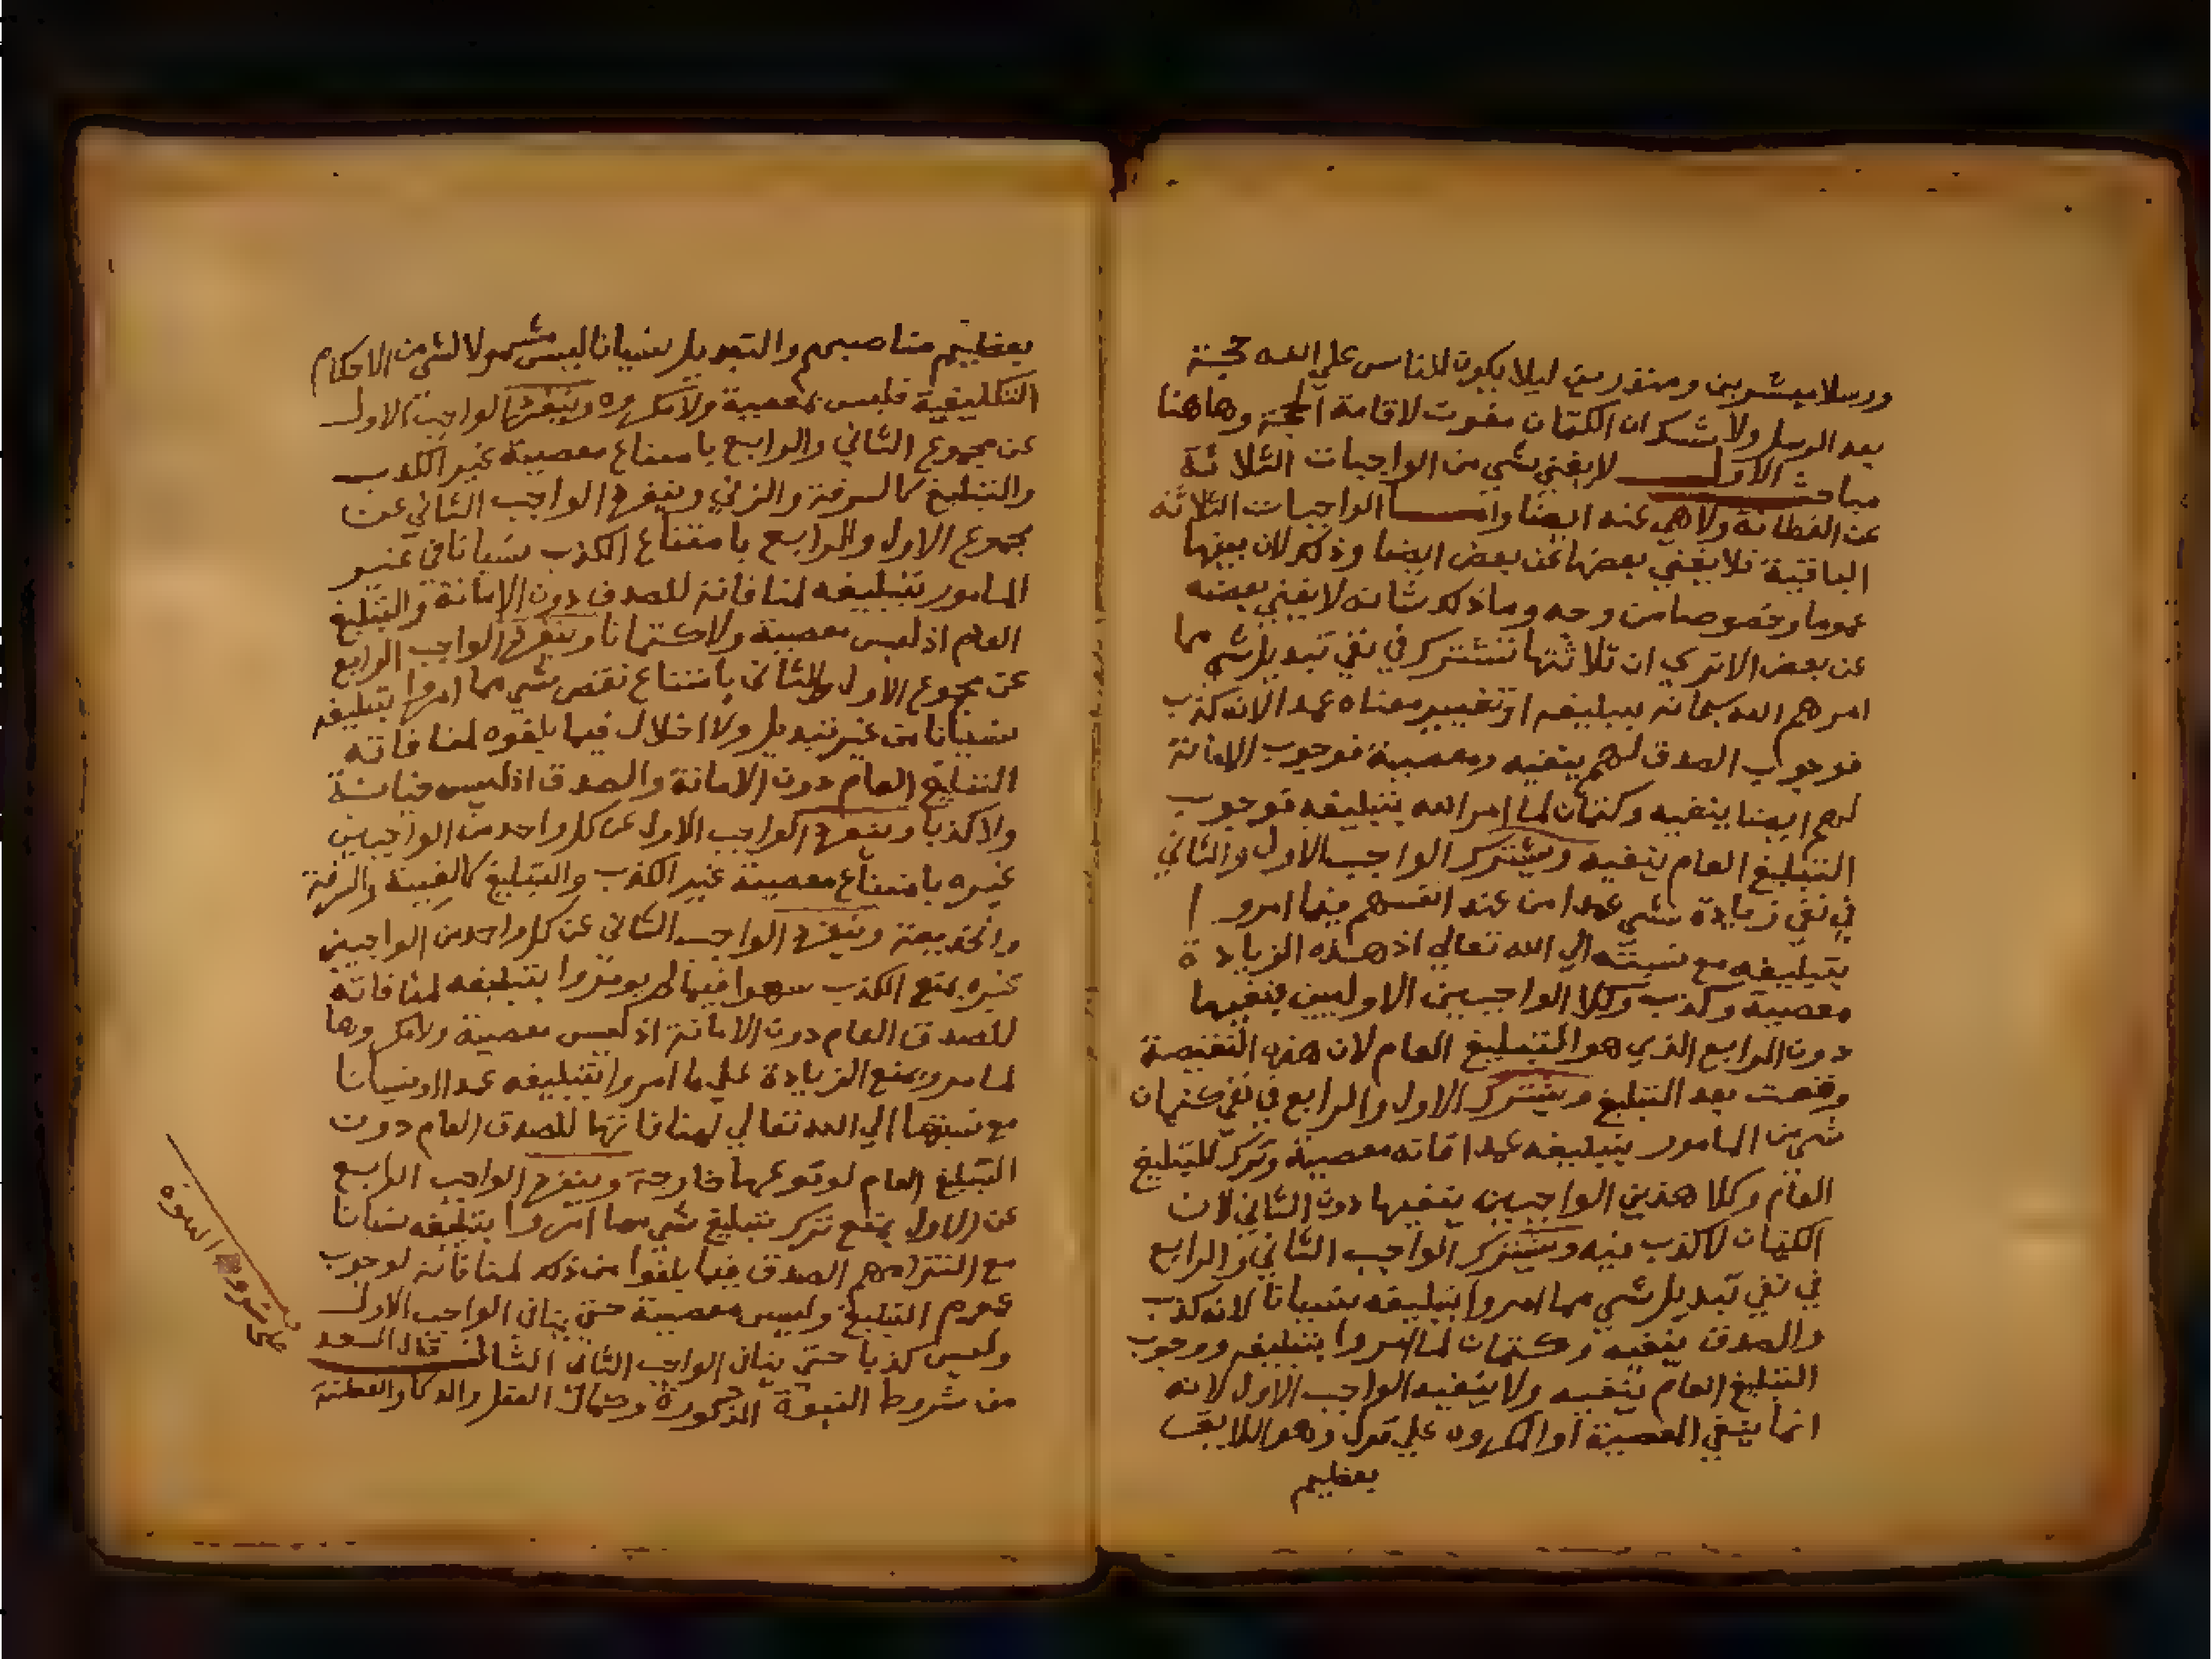 ورسلا مبشرين ومنذرين ليلا يكون للناس علي الله حجة
بعد الرسل ولا شك ان الكتمان مفوت لاقامة الحجة وهاهنا
مباحث الاول لا يغني شي من الواجبات الثلاثة
عن الفطانة ولا هي عنه ايضا واما الواجبات الثلاثة
الباقية فلا يغني بعضها عن بعض ايضا وذلك لان بينها
عموما وخصوصا من وجه وما ذلك شانه لا يغني بعضه
عن بعض الا تري ان ثلاثتها تشترك في نفي تبديل شي مما
امرهم الله سبحانه بتبليغه او تغيير معناه عمدا لانه كذب
فوجوب الصدق لهم ينفيه ومعصية فوجوب الامانة
لهم ايضا ينفيه وكتمان لما امر الله بتبليغه فوجوب
التبليغ العام ينفيه ويشترك الواجب الاول والثاني
في نفي زيادة شي عمدا من عند انفسهم فيما امروا
بتبليغه مع نسبته الي الله تعالي اذ هذه الزيادة
معصية وكذب وكلا الواجبين الاوليين ينفيها
دون الرابع الذي هو التبليغ العام لان هذه النقيصة
وقعت بعد التبليغ ويشترك الاول والرابع في نفي كتمان
شي من المامور بتبليغه عمدا فانه معصية وترك للتبليغ
العام وكلا هذين الواجبين ينفيها دون الثاني لان
الكتمان لا كذب فيه ويشترك الواجب الثاني والرابع
في نفي تبديل شي مما امروا بتبليغه نسيانا لانه كذب
والصدق ينفيه وكتمان لما امروا بتبليغه ووجوب
التبليغ العام ينفيه ولا ينفيه الواجب الاول لانه
انما ينفي المعصية او المكروه علي قول وهو اللايق
بعظيم
بعظيم مناصبهم والتبديل نسيانا ليس مشمولا لشي من الاحكام
التكليفية فليس بمعصية ولا مكروه وينفرد الواجب الاول
عن مجموع الثاني والرابع بامتناع معصية غير الكذب
والتبليغ كالسرقة والزني وينفرد الواجب الثاني عن
مجموع الاول والرابع بامتناع الكذب نسيانا في غير
المامور بتبليغه لمنافاته للصدق دون الامانة والتبليغ
العام اذ ليس معصية ولا كتمانا وينفرد الواجب الرابع
عن مجموع الاول والثاني بامتناع نقص شي مما امروا بتبليغه
نسيانا من غير تبديل ولا اخلال فيما بلغوه لمنافاته
التبليغ العام دون الامانة والصدق اذ ليس خيانة
ولا كذبا وينفرد الواجب الاول عن كل واحد من الواجبين
غيره بامتناع معصية غير الكذب والتبليغ كالغيبة والسرقة
والخديعة وينفرد الواجب الثاني عن كل واحد من الواجبين
غيره بمنع الكذب سهوا فيما لم يومروا بتبليغه لمنافاته
للصدق العام دون الامانة اذ ليس معصية ولا مكروها
لما مر وبمنع الزيادة علي ما امروا بتبليغه عمدا او نسيانا
مع نسبتها الي الله تعالي لمنافاتها للصدق العام دون
التبليغ العام لوقوعها خارجة وينفرد الواجب الرابع
عن الاول بمنع ترك تبليغ شي مما امروا بتبليغه نسيانا
مع التزامهم الصدق فيما بلغوا من ذلك لمنافاته لوجوب
عموم التبليغ وليس معصية حتي ينافي الواجب الاول
وليس كذبا حتي ينافي الواجب الثاني الثاني قال السعد
من شروط النبوة الذكورة وكمال العقل والذكا والفطنة
شروط النبوة